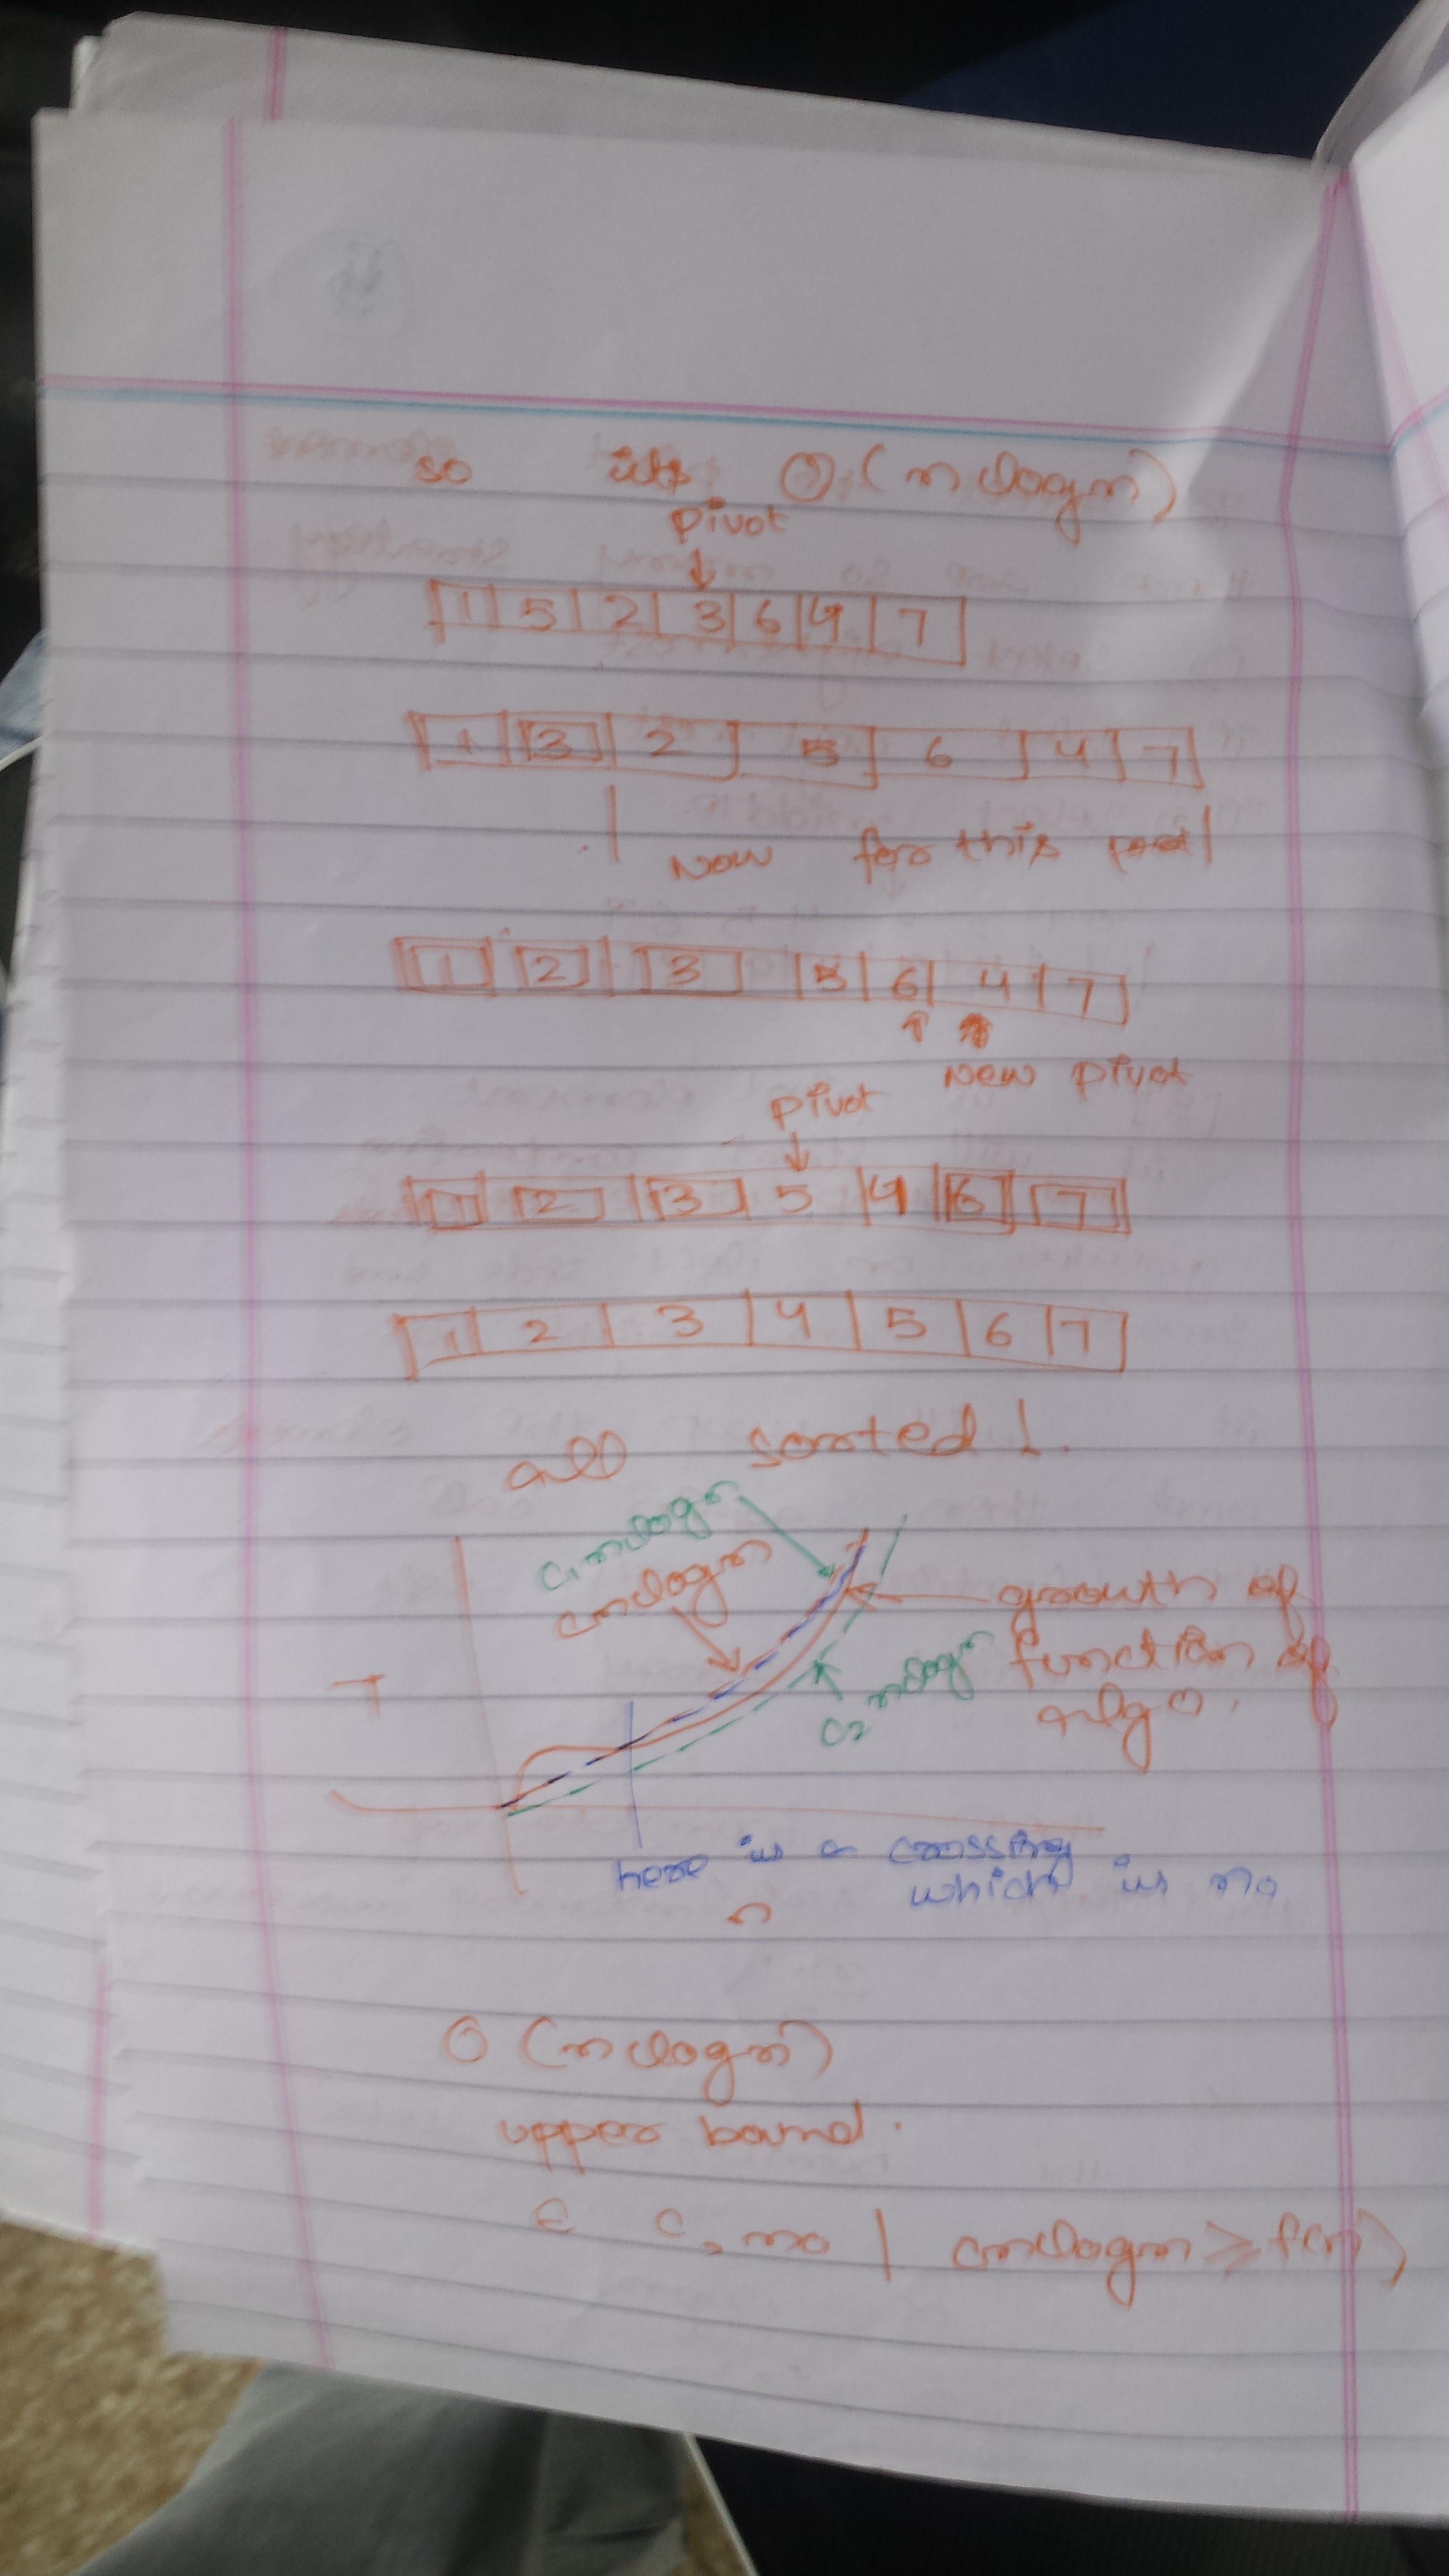 so its O(nlogn)
pivot
1 5 2 3 6 4 7
1 3 2 5 6 4 7
Now for this
1 2 3 5 6 4 7
New pivot
pivot
1 2 3 5 4 6 7
1 2 3 4 5 6 7
all sorted!
c1nlogn
cnlogn
growth of
function of
algo.
c2 nlogn
T
here is a crossing
which is n0
n
O(nlogn)
upper bound.
c, n0 | cnlogn ≥ f(n)